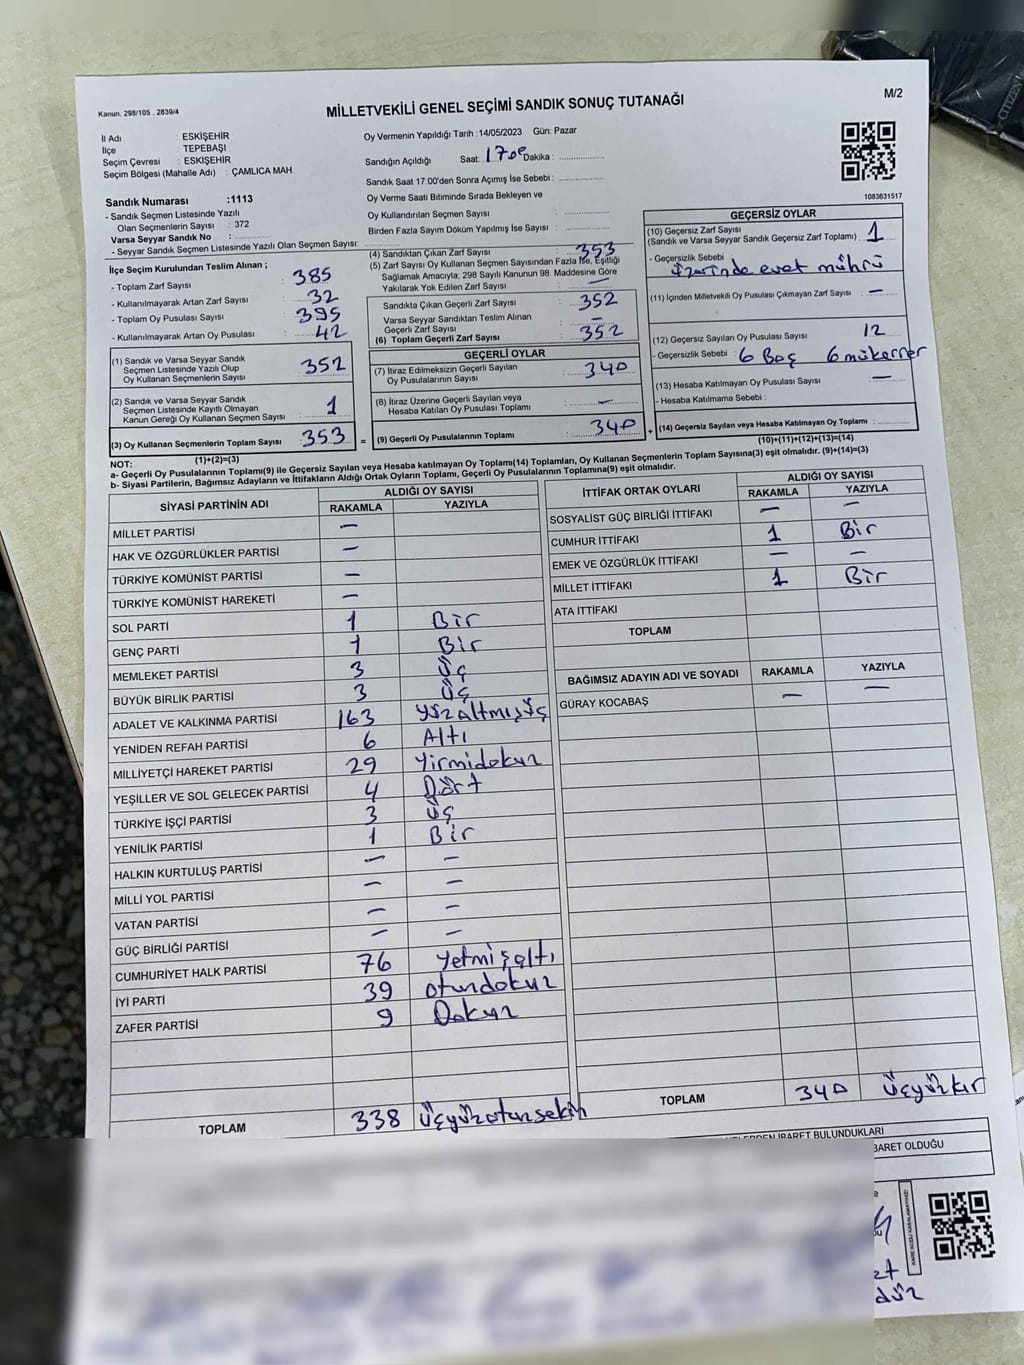 Kanun. 298/105 , 2839/4
MİLLETVEKİLİ GENEL SEÇİMİ SANDIK SONUÇ TUTANAĞI
M/2
İl Adı : ESKİŞEHİR
İlçe : TEPEBAŞI
Seçim Çevresi : ESKİŞEHİR
Seçim Bölgesi (Mahalle Adı) : ÇAMLICA MAH.
Oy Vermenin Yapıldığı Tarih :14/05/2023 Gün: Pazar
Sandığın Açıldığı Saat: 17 00 Dakika : ..................
Sandık Saat 17.00'den Sonra Açımış İse Sebebi : ..................
Oy Verme Saati Bitiminde Sırada Bekleyen ve
Oy Kullandırılan Seçmen Sayısı : ..................
Birden Fazla Sayım Döküm Yapılmış İse Sayısı : ..................
1083631517
Sandık Numarası :1113
- Sandık Seçmen Listesinde Yazılı
Olan Seçmenlerin Sayısı : 372
Varsa Seyyar Sandık No : ..................
- Seyyar Sandık Seçmen Listesinde Yazılı Olan Seçmen Sayısı: ..................
İlçe Seçim Kurulundan Teslim Alınan ;
- Toplam Zarf Sayısı : 385
- Kullanılmayarak Artan Zarf Sayısı : 32
- Toplam Oy Pusulası Sayısı : 395
- Kullanılmayarak Artan Oy Pusulası : 42
(1) Sandık ve Varsa Seyyar Sandık
Seçmen Listesinde Yazılı Olup
Oy Kullanan Seçmenlerin Sayısı : 352
(2) Sandık ve Varsa Seyyar Sandık
Seçmen Listesinde Kayıtlı Olmayan
Kanun Gereği Oy Kullanan Seçmen Sayısı : 1
(3) Oy Kullanan Seçmenlerin Toplam Sayısı : 353 =
(1)+(2)=(3)
(4) Sandıktan Çıkan Zarf Sayısı : 353
(5) Zarf Sayısı Oy Kullanan Seçmen Sayısından Fazla İse, Eşitliği
Sağlamak Amacıyla; 298 Sayılı Kanunun 98. Maddesine Göre
Yakılarak Yok Edilen Zarf Sayısı : —
Sandıkta Çıkan Geçerli Zarf Sayısı : 352
Varsa Seyyar Sandıktan Teslim Alınan
Geçerli Zarf Sayısı : —
(6) Toplam Geçerli Zarf Sayısı : 352
GEÇERLİ OYLAR
(7) İtiraz Edilmeksizin Geçerli Sayılan
Oy Pusulalarının Sayısı : 340
(8) İtiraz Üzerine Geçerli Sayılan veya
Hesaba Katılan Oy Pusulası Toplamı : —
(9) Geçerli Oy Pusulalarının Toplamı : 340 +
GEÇERSİZ OYLAR
(10) Geçersiz Zarf Sayısı
(Sandık ve Varsa Seyyar Sandık Geçersiz Zarf Toplamı) : 1
- Geçersizlik Sebebi :
Üzerinde evet mührü
(11) İçinden Milletvekili Oy Pusulası Çıkmayan Zarf Sayısı : —
(12) Geçersiz Sayılan Oy Pusulası Sayısı : 12
- Geçersizlik Sebebi : 6 Boş 6 mükerrer
(13) Hesaba Katılmayan Oy Pusulası Sayısı : —
- Hesaba Katılmama Sebebi :
(14) Geçersiz Sayılan veya Hesaba Katılmayan Oy Toplamı : ..................
(10)+(11)+(12)+(13)=(14)
NOT:
a- Geçerli Oy Pusulalarının Toplamı(9) ile Geçersiz Sayılan veya Hesaba katılmayan Oy Toplamı(14) Toplamları, Oy Kullanan Seçmenlerin Toplam Sayısına(3) eşit olmalıdır. (9)+(14)=(3)
b- Siyasi Partilerin, Bağımsız Adayların ve İttifakların Aldığı Ortak Oyların Toplamı, Geçerli Oy Pusulalarının Toplamına(9) eşit olmalıdır.
SİYASİ PARTİNİN ADI ALDIĞI OY SAYISI
RAKAMLA YAZIYLA
MİLLET PARTİSİ —
HAK VE ÖZGÜRLÜKLER PARTİSİ —
TÜRKİYE KOMÜNİST PARTİSİ —
TÜRKİYE KOMÜNİST HAREKETİ —
SOL PARTİ 1 Bir
GENÇ PARTİ 1 Bir
MEMLEKET PARTİSİ 3 Üç
BÜYÜK BİRLİK PARTİSİ 3 Üç
ADALET VE KALKINMA PARTİSİ 163 yüzaltmışüç
YENİDEN REFAH PARTİSİ 6 Altı
MİLLİYETÇİ HAREKET PARTİSİ 29 Yirmidokuz
YEŞİLLER VE SOL GELECEK PARTİSİ 4 Dört
TÜRKİYE İŞÇİ PARTİSİ 3 üç
YENİLİK PARTİSİ 1 Bir
HALKIN KURTULUŞ PARTİSİ — —
MİLLİ YOL PARTİSİ — —
VATAN PARTİSİ — —
GÜÇ BİRLİĞİ PARTİSİ — —
CUMHURİYET HALK PARTİSİ 76 Yetmişaltı
İYİ PARTİ 39 otuzdokuz
ZAFER PARTİSİ 9 Dokuz
TOPLAM 338 üçyüzotuzsekiz
İTTİFAK ORTAK OYLARI ALDIĞI OY SAYISI
RAKAMLA YAZIYLA
SOSYALİST GÜÇ BİRLİĞİ İTTİFAKI — —
CUMHUR İTTİFAKI 1 Bir
EMEK VE ÖZGÜRLÜK İTTİFAKI — —
MİLLET İTTİFAKI 1 Bir
ATA İTTİFAKI
TOPLAM
BAĞIMSIZ ADAYIN ADI VE SOYADI RAKAMLA YAZIYLA
GÜRAY KOCABAŞ — —
TOPLAM 340 üçyüzkır
İBARET BULUNDUKLARI
BARET OLDUĞU
CITIZEN